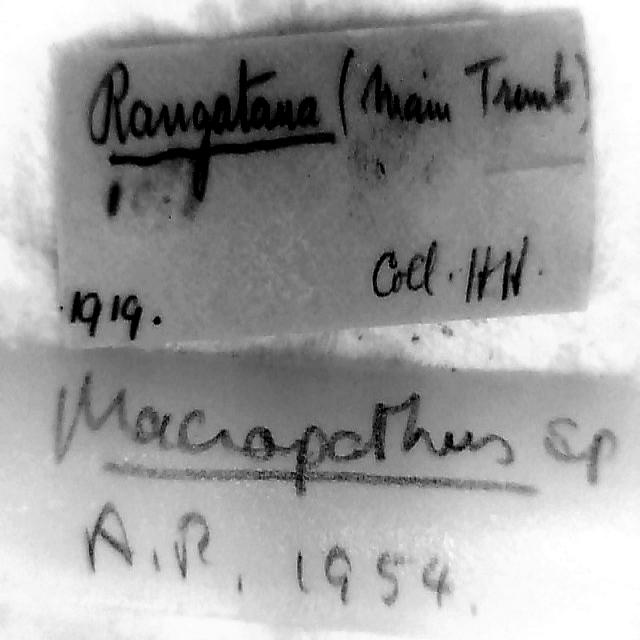 Rangatana (Main Trunk)
Coll. HH.
1919.
Macropathus sp
A.R. 1954.